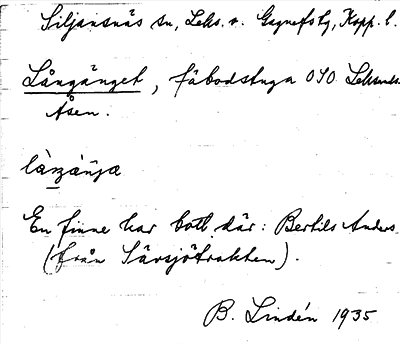 Siljansnäs sn, Leks. o. Gagnefs tg, Kopp. l.
Långänget, fäbodstuga OSO Leksands
Åsen.
En finne har bott där: Bertils Anders
(från Särsjötrakten).
B. Lindén 1935